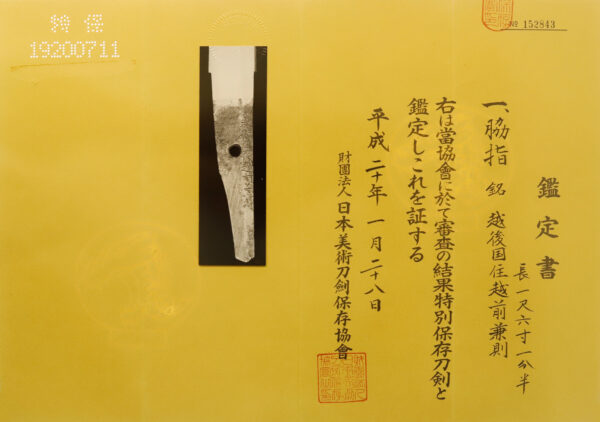 鑑定書
一、脇指 銘 越後国住越前兼則
長一尺六寸一分半
右は當協會に於て審査の結果特別保存刀剣と
鑑定しこれを証する
平成二十年一月二十八日
財團法人日本美術刀劍保存協會
№ 152843
特保
19200711